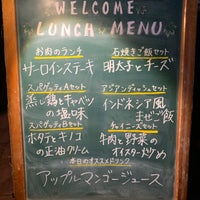 WELCOME
LUNCH MENU
お肉のランチ
サーロインステーキ
スパゲッティAセット
蒸し鶏とキャベツ
の塩味
スパゲッティBセット
ホタテとキノコ
の正油クリーム
石焼きご飯セット
明太子とチーズ
アジアンディッシュセット
インドネシア風
まぜご飯
チャイニーズセット
牛肉と野菜の
オイスター炒め
本日のオススメドリンク
アップルマンゴージュース